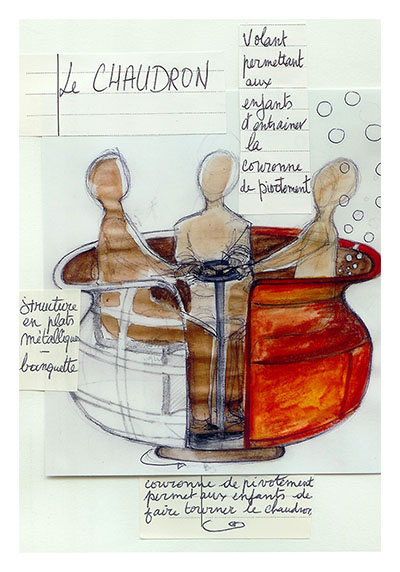 Le CHAUDRON
Volant
permettant
aux
enfants
d'entrainer
la
couronne
de pivotement
Structure
en plats
métalliques
-
banquette
couronne de pivotement
permet aux enfants de
faire tourner le chaudron